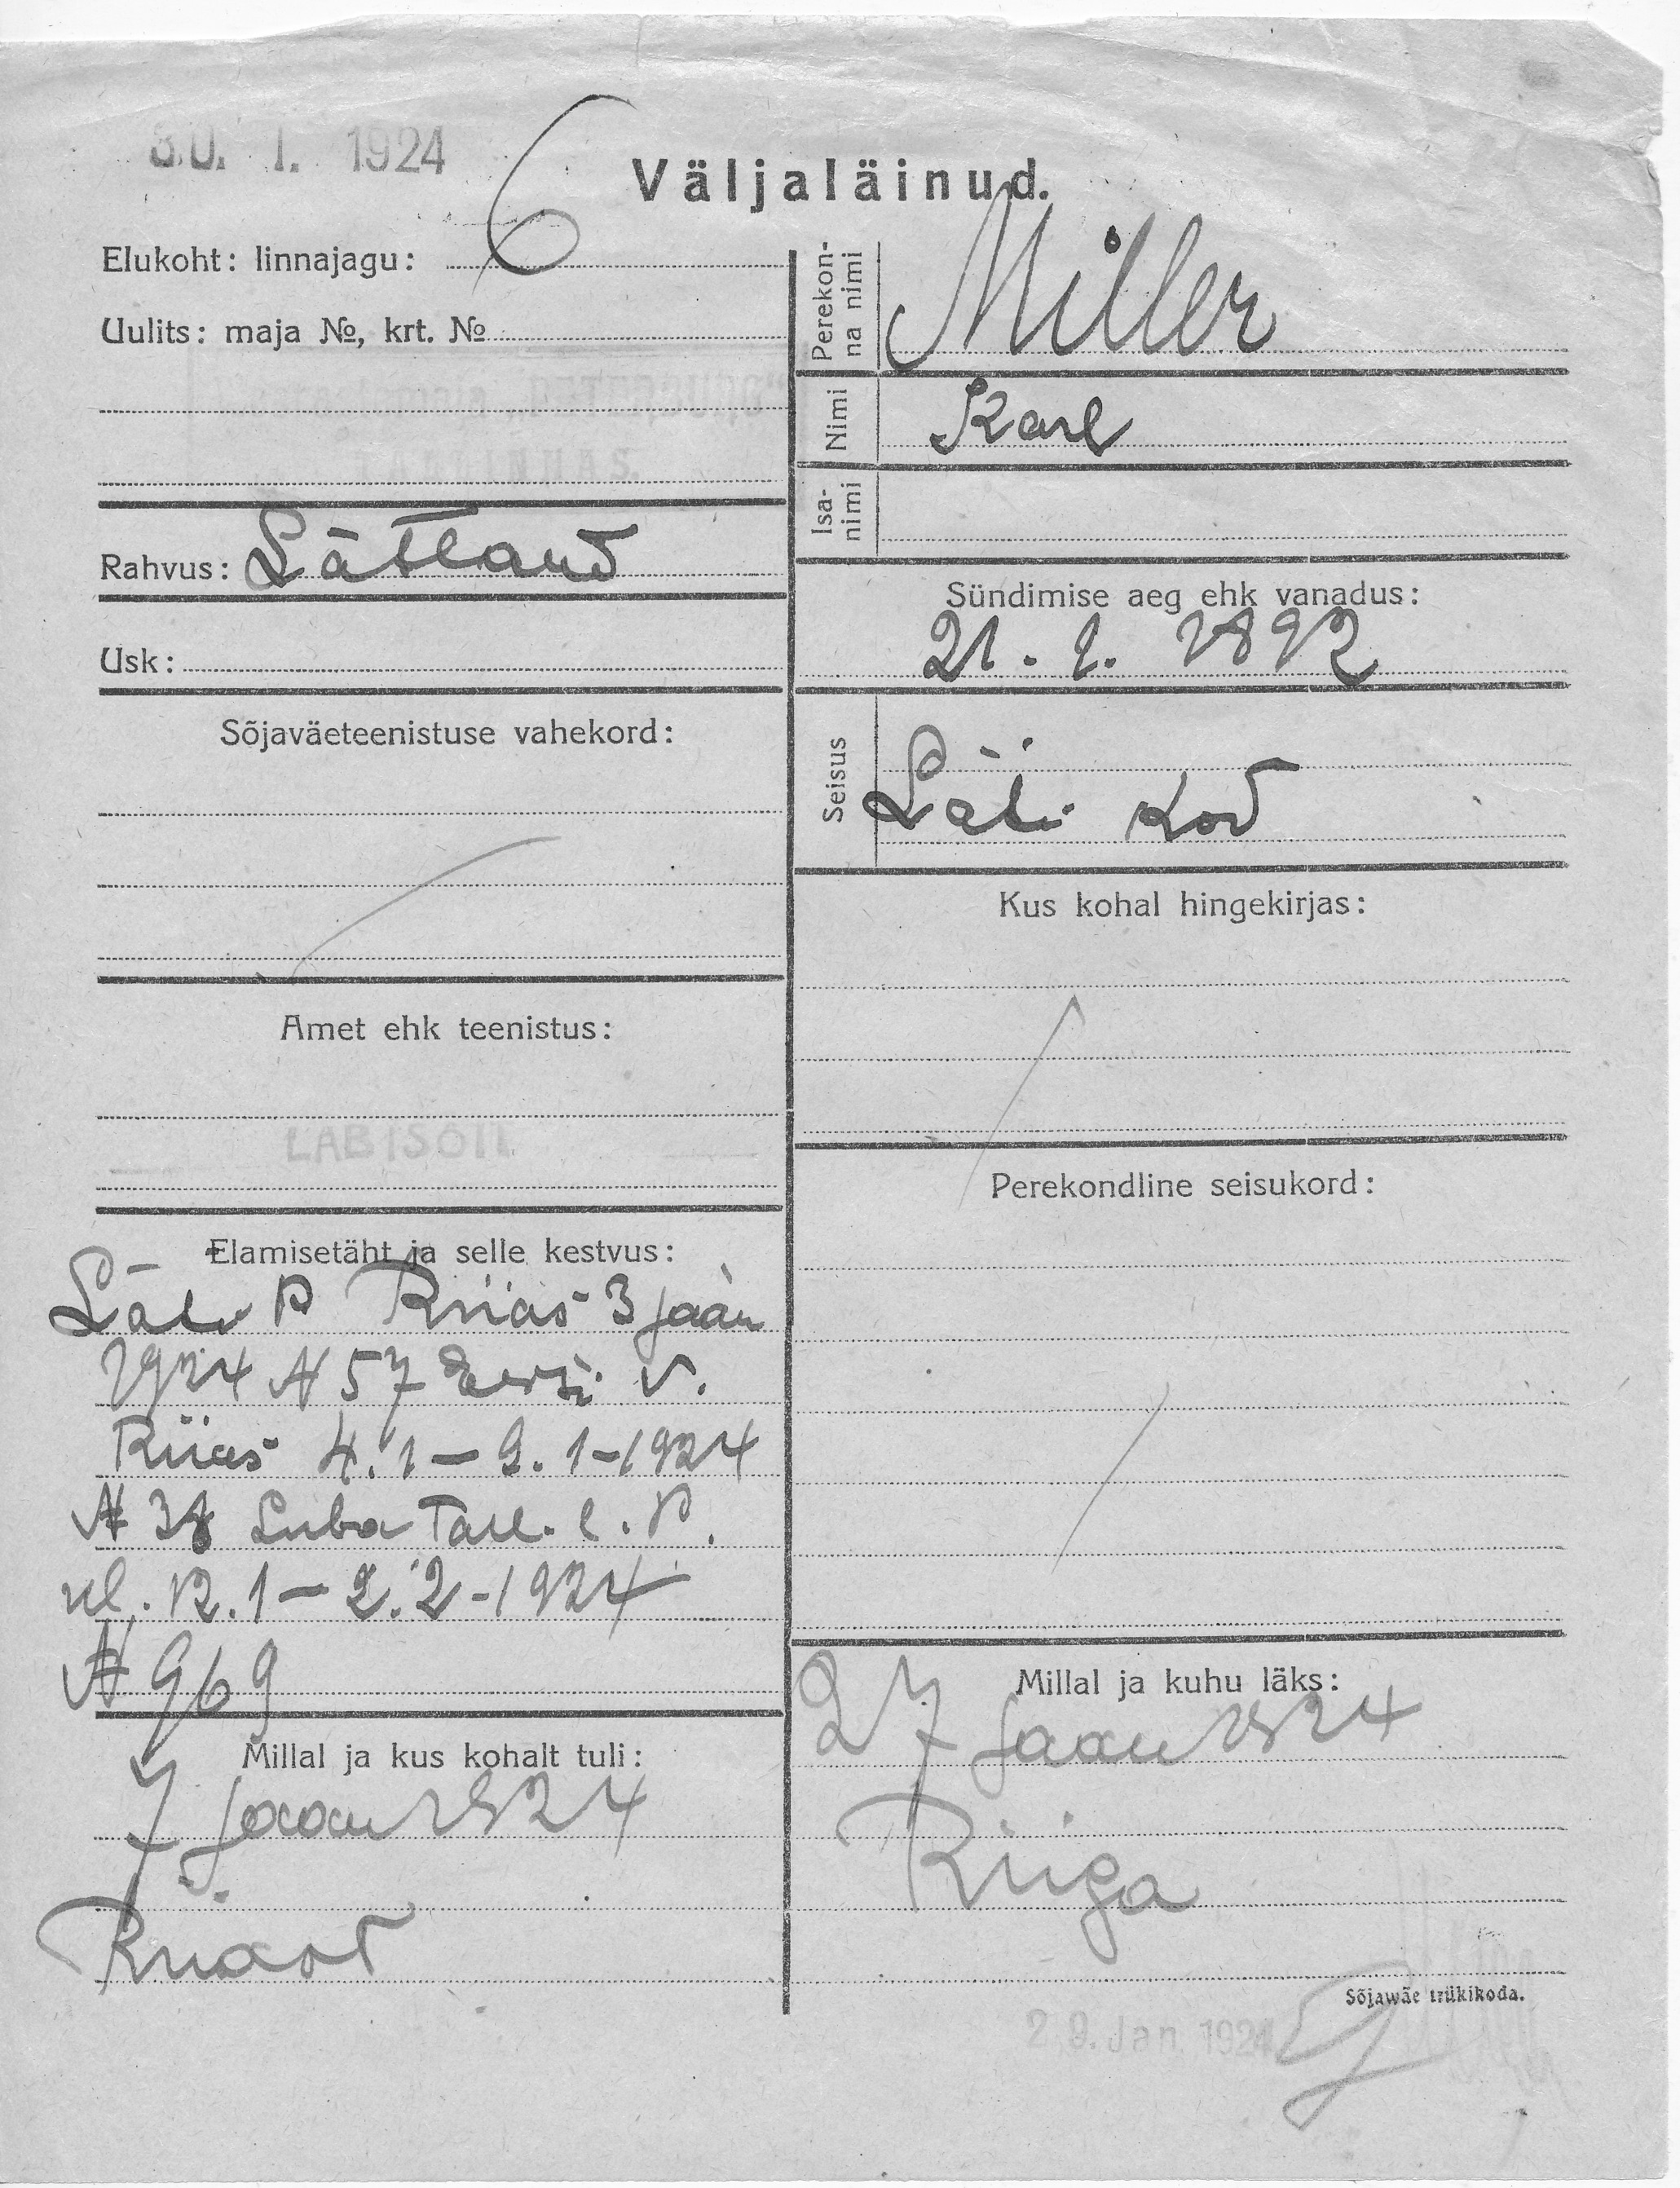 30. I. 1924
Väljaläinud.
Elukoht: linnajagu: 6
Uulits: maja №, krt. №
"PETERBURG"
TALLINNAS.
Rahvus: Lätland
Usk:
Sõjaväeteenistuse vahekord:
Amet ehk teenistus:
LÄBISÕIT
Elamisetäht ja selle kestvus:
Läti P Riias 3 jaan
1924 N 57 Eesti V.
Riias 4.1–9.1–1924
N 38 Luba Tall. l. P.
ül. 12.1–2.2–1924
N 969
Millal ja kus kohalt tuli:
7 jaan 1924
Riiast
Perekonna nimi Miller
Nimi Karl
Isanimi
Sündimise aeg ehk vanadus:
21. 1. 1892
Seisus Läti kod
Kus kohal hingekirjas:
Perekondline seisukord:
Millal ja kuhu läks:
27 jaan 1924
Riiga
Sõjawäe trükikoda.
29. Jan. 1924